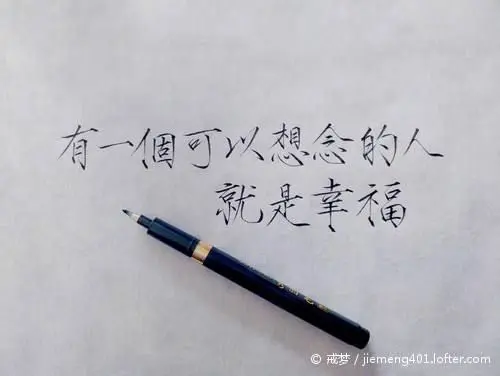 有一個可以想念的人
就是幸福
© 戒梦 / jiemeng401.lofter.com